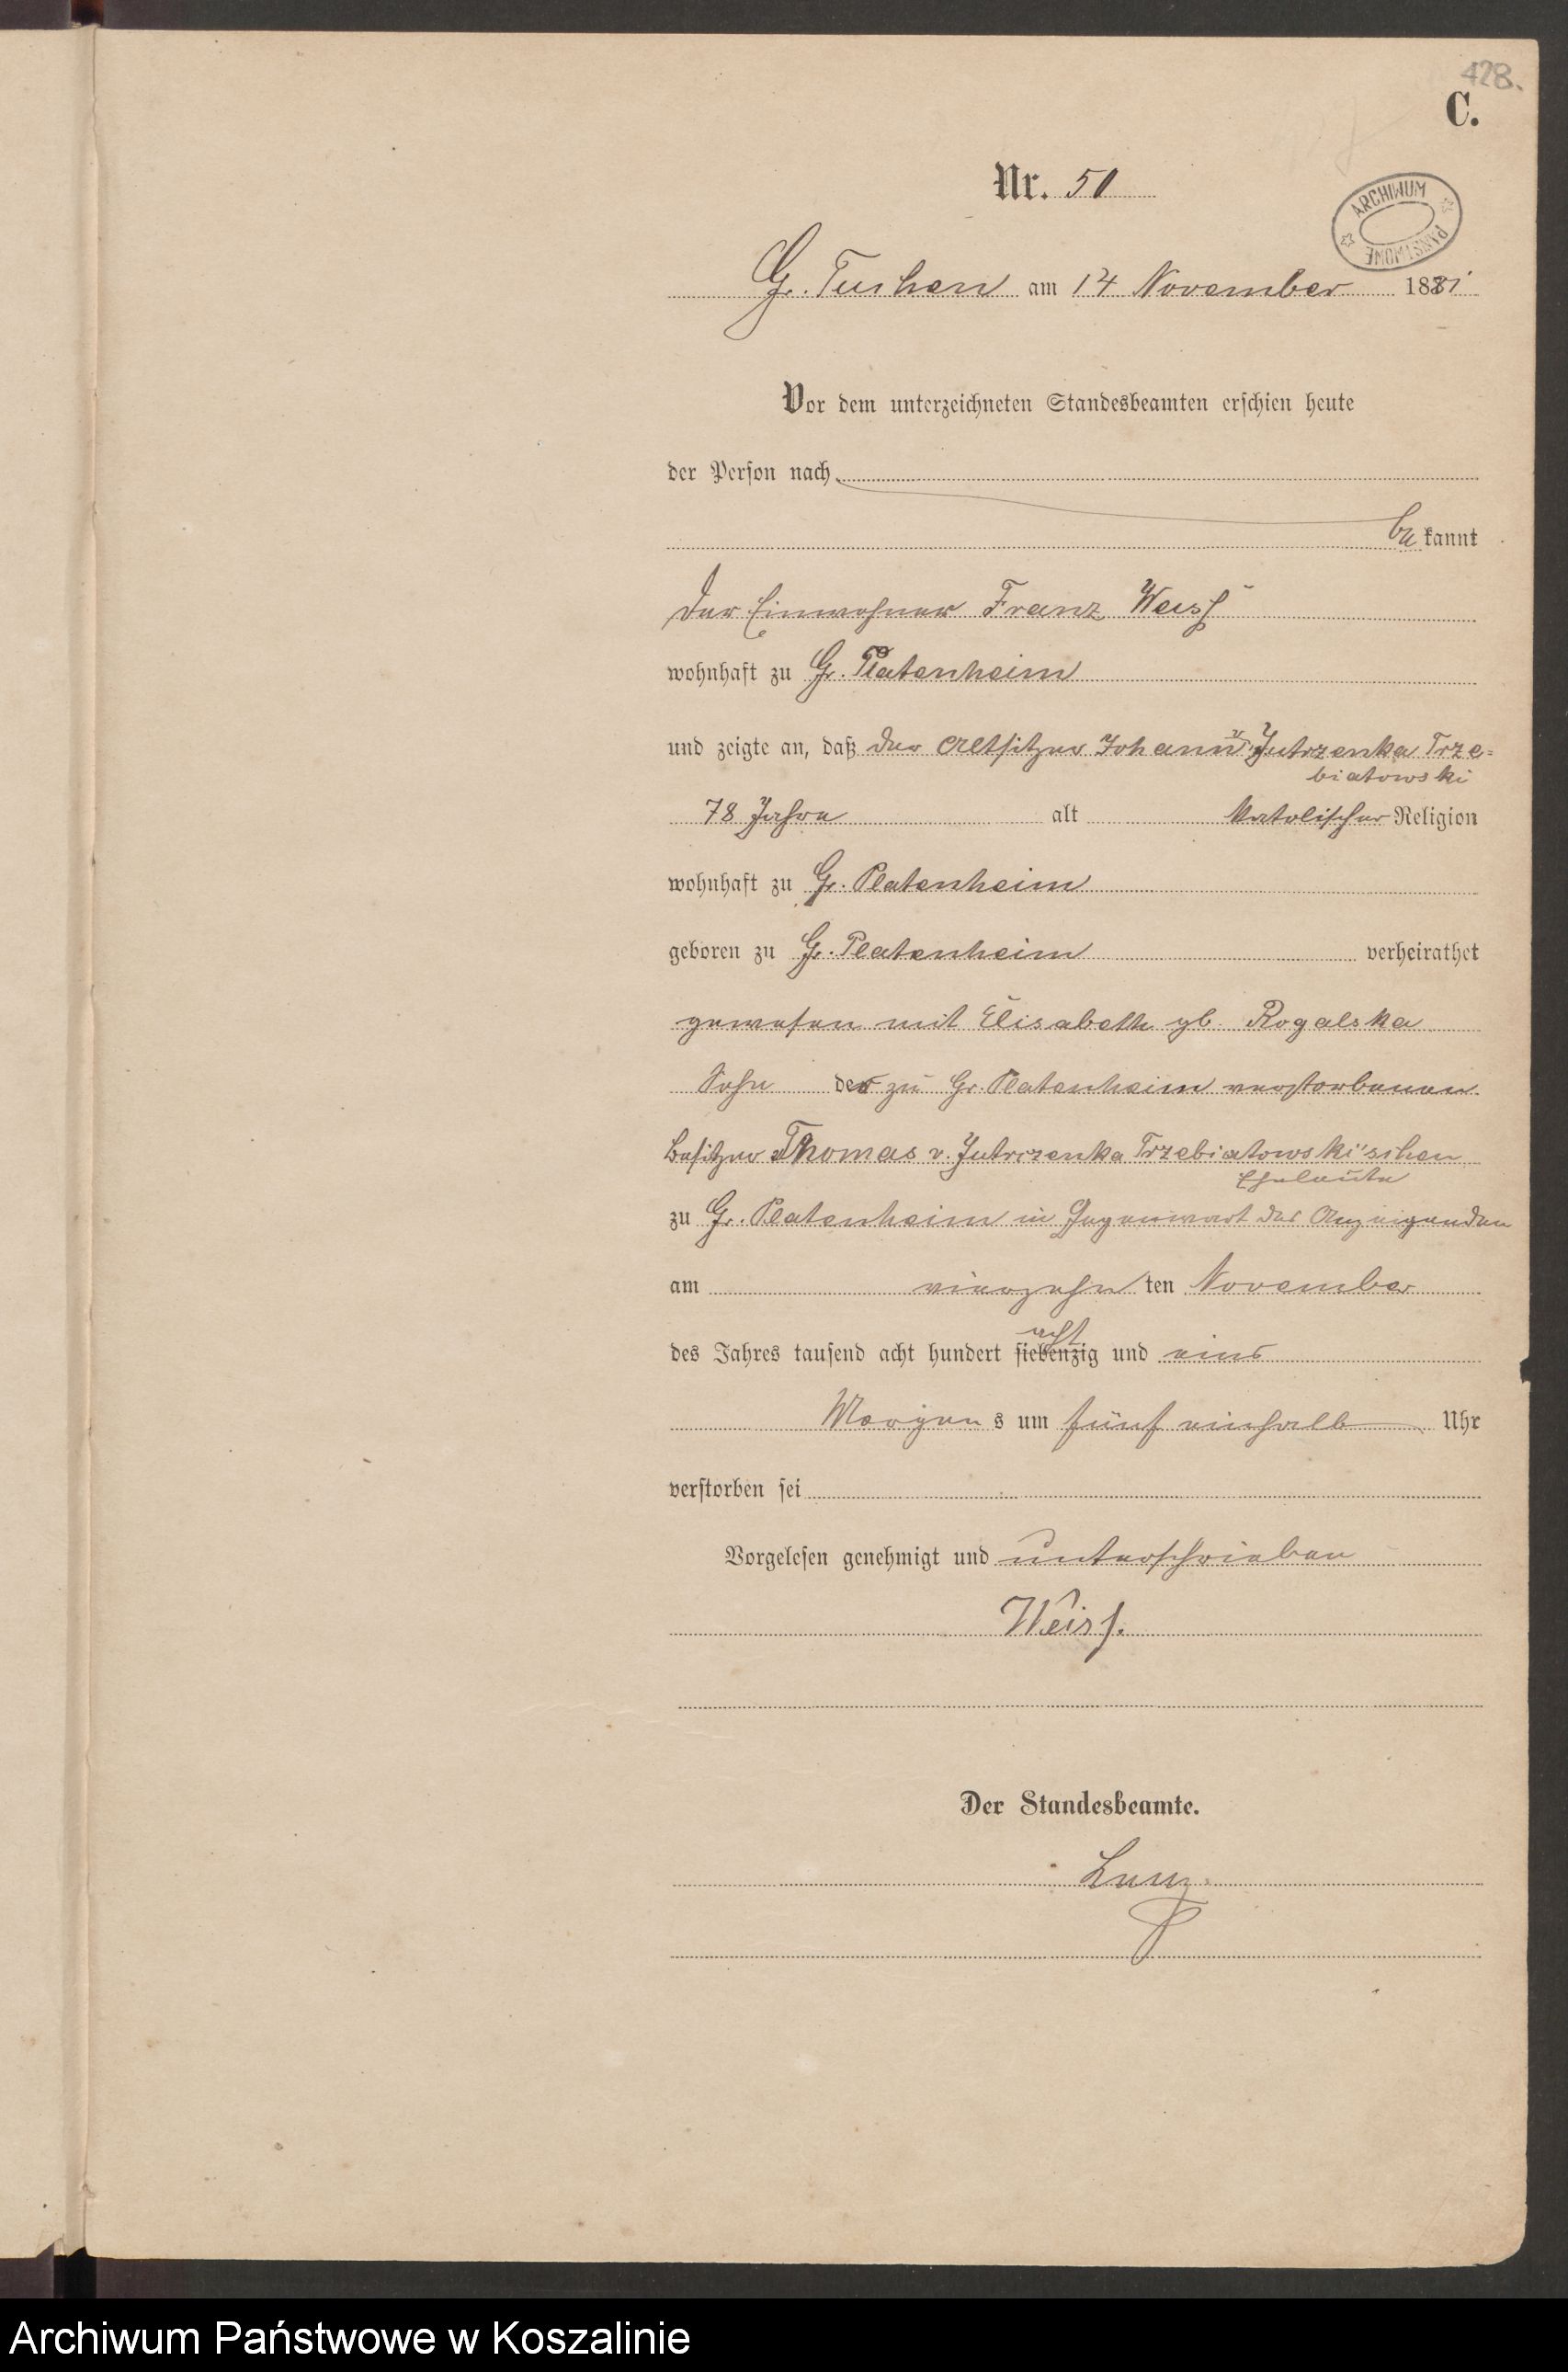 428.
C.
Nr. 50
ARCHIWUM PAŃSTWOWE
Gr. Tuchen am 14 November 1881
Vor dem unterzeichneten Standesbeamten erschien heute
der Person nach
bekannt
der Einwohner Franz Weiß
wohnhaft zu Gr. Platenheim
und zeigte an, daß der Altsitzer Johann v. Jutrzenka Trze=
biatowski
78 Jahre alt katolischer Religion
wohnhaft zu Gr. Platenheim
geboren zu Gr. Platenheim verheirathet
gewesen mit Elisabeth gb. Rogalska
Sohn der zu Gr. Platenheim verstorbenen
Besitzer Thomas v. Jutrzenka Trzebiatowski'schen
Eheleute
zu Gr. Platenheim in Gegenwart des Anzeigenden
am vierzehnten November
des Jahres tausend acht hundert siebenzig und eins
acht
Morgens um fünf einhalb Uhr
verstorben sei
Vorgelesen genehmigt und unterschrieben
Weiß.
Der Standesbeamte.
Archiwum Państwowe w Koszalinie